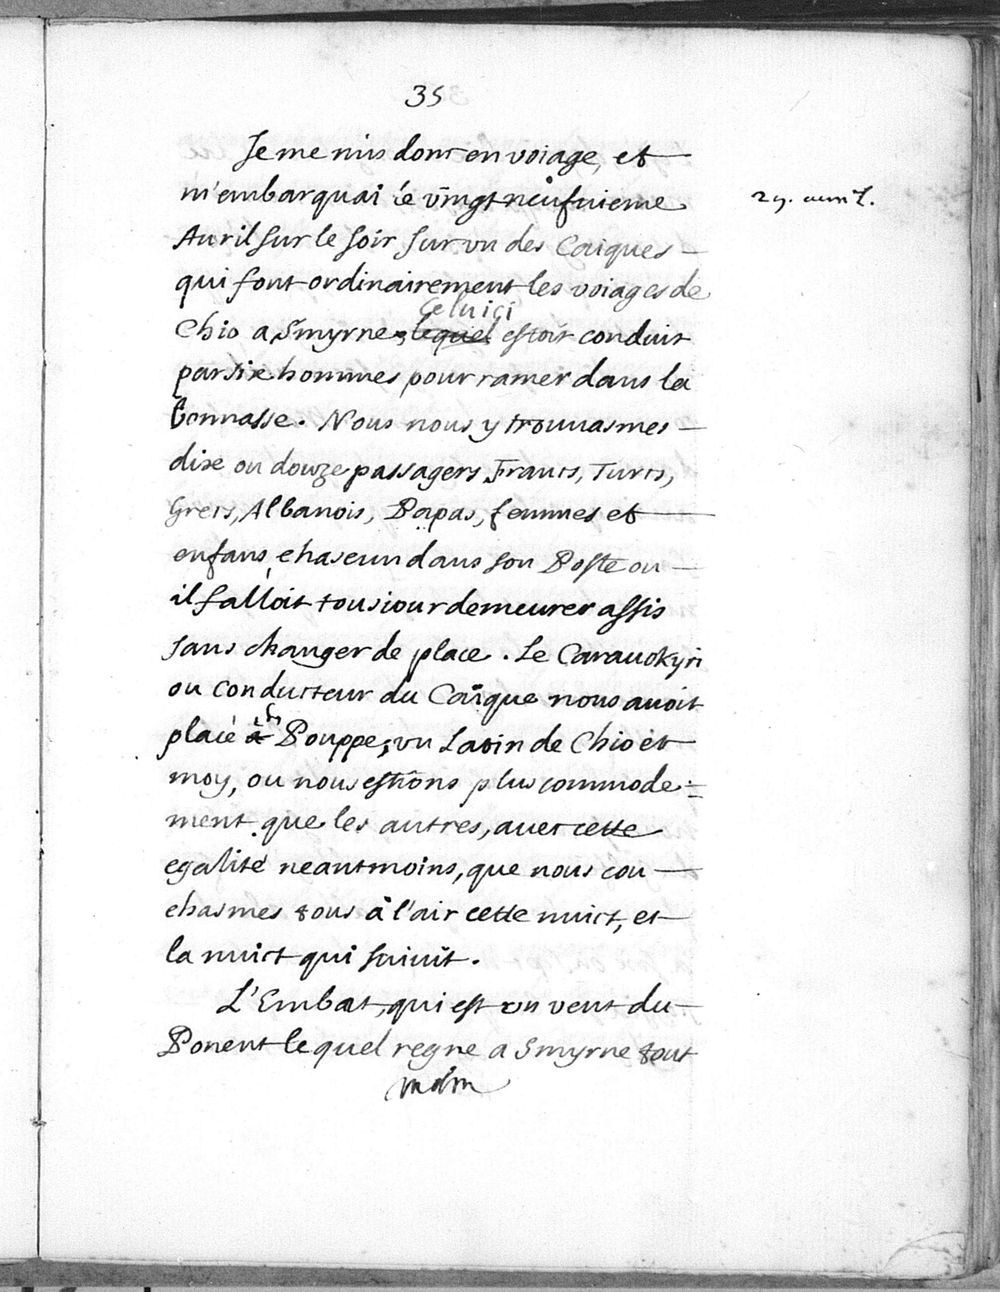 35
Je me mis donc en voiage, et
m'embarquai le vingt neufuieme
29. auril.
Auril sur le soir sur vn des Caiques
qui font ordinairement les voiages de
celui ici
Chio a Smyrne, lequel estoit conduit
par six hommes pour ramer dans la
bonnasse. Nous nous y trouuasmes
dix ou douze passagers, Francs, Turcs,
Grecs, Albanois, Papas, femmes et
enfans, chascun dans son Poste ou
il falloit tousiour demeurer assis
sans changer de place. Le Carauokyri
ou conducteur du Caïque nous auoit
placé à Pouppe, vn Latin de Chio et
moy, ou nous estiôns plus commode=
ment que les autres, auec cette
egalité neantmoins, que nous cou
chasmes tous à l'air cette nuict, et
la nuict qui suiuit.
L'Embat, qui est vn vent du
Ponent lequel regne a Smyrne tout